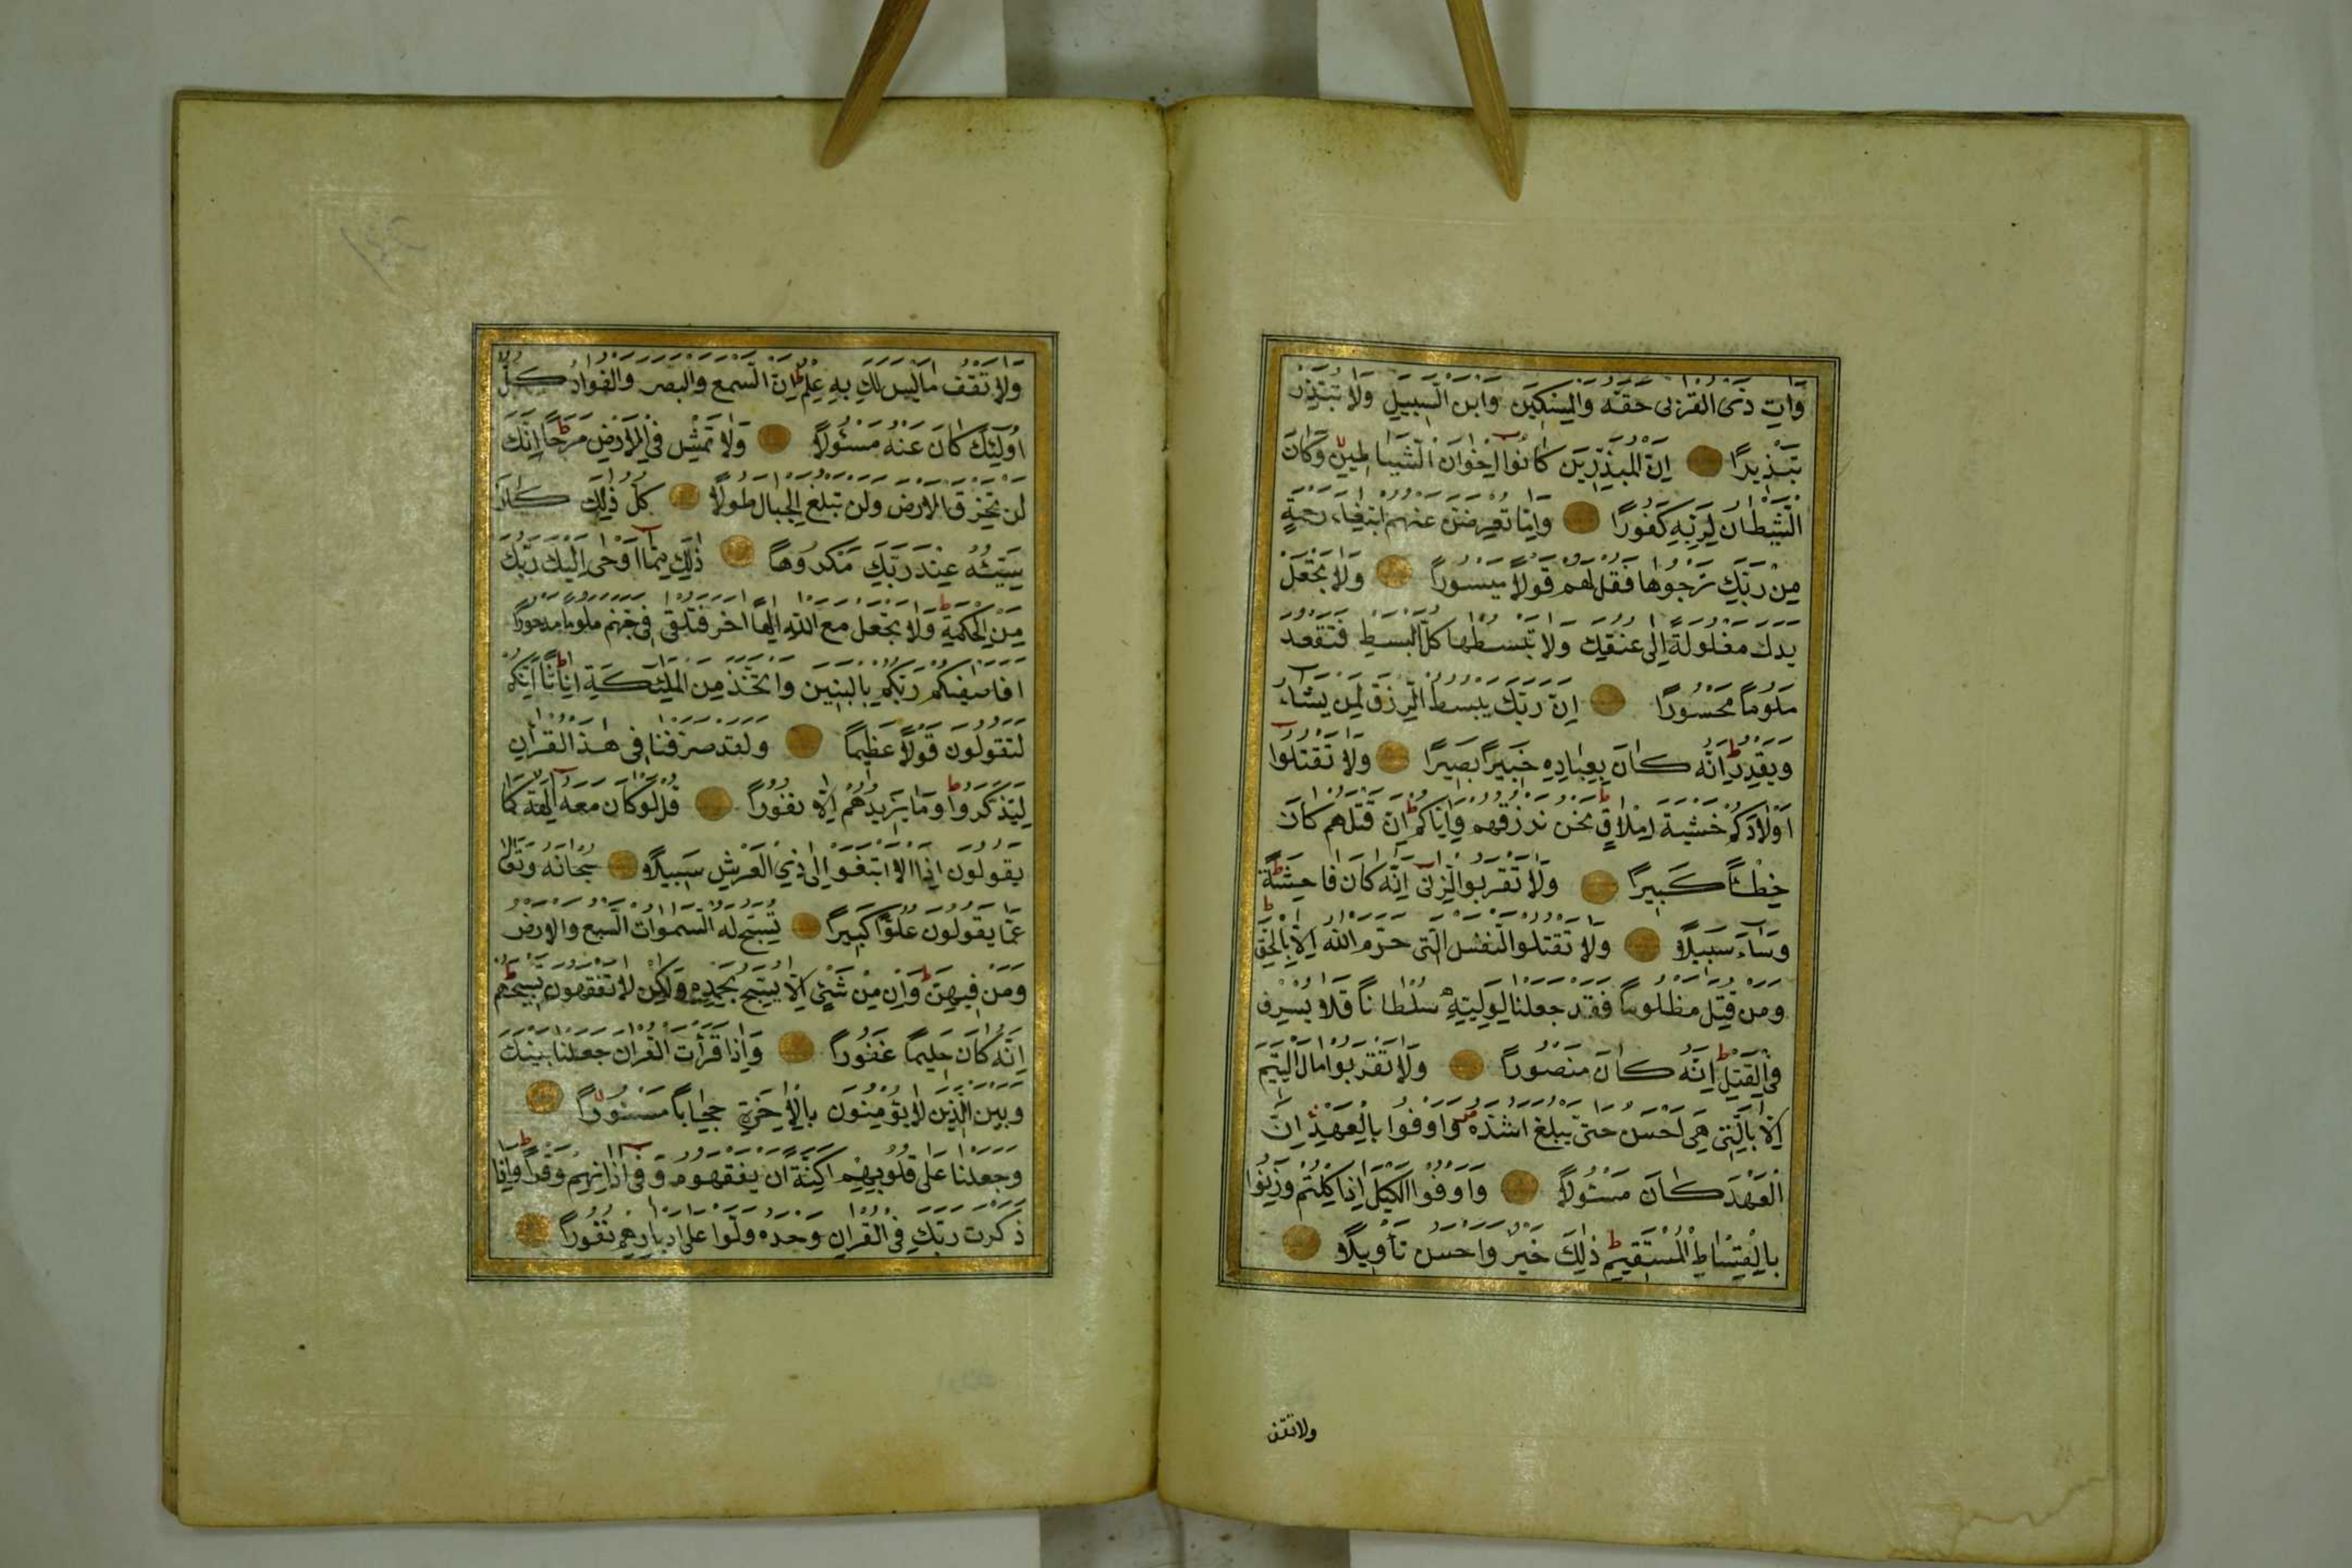 وَاٰتِ ذَى الْقُرْبٰى حَقَّهُ وَالْمِسْكِينَ وَابْنَ السَّبِيلِ وَلَا تُبَذِّرْ
تَبْذِيرًا اِنَّ الْمُبَذِّرِينَ كَانُوا اِخْوَانَ الشَّيَاطِينِ وَكَانَ
الشَّيْطَانُ لِرَبِّهِ كَفُورًا وَاِمَّا تُعْرِضَنَّ عَنْهُمُ ابْتِغَاءَ رَحْمَةٍ
مِنْ رَبِّكَ تَرْجُوهَا فَقُلْ لَهُمْ قَوْلًا مَيْسُورًا وَلَا تَجْعَلْ
يَدَكَ مَغْلُولَةً اِلٰى عُنُقِكَ وَلَا تَبْسُطْهَا كُلَّ الْبَسْطِ فَتَقْعُدَ
مَلُومًا مَحْسُورًا اِنَّ رَبَّكَ يَبْسُطُ الرِّزْقَ لِمَنْ يَشَاءُ
وَيَقْدِرُ اِنَّهُ كَانَ بِعِبَادِهِ خَبِيرًا بَصِيرًا وَلَا تَقْتُلُوا
اَوْلَادَكُمْ خَشْيَةَ اِمْلَاقٍ نَحْنُ نَرْزُقُهُمْ وَاِيَّاكُمْ اِنَّ قَتْلَهُمْ كَانَ
خِطْئًا كَبِيرًا وَلَا تَقْرَبُوا الزِّنٰى اِنَّهُ كَانَ فَاحِشَةً
وَسَاءَ سَبِيلًا وَلَا تَقْتُلُوا النَّفْسَ الَّتِى حَرَّمَ اللّٰهُ اِلَّا بِالْحَقِّ
وَمَنْ قُتِلَ مَظْلُومًا فَقَدْ جَعَلْنَا لِوَلِيِّهِ سُلْطَانًا فَلَا يُسْرِفْ
فِى الْقَتْلِ اِنَّهُ كَانَ مَنْصُورًا وَلَا تَقْرَبُوا مَالَ الْيَتِيمِ
اِلَّا بِالَّتِى هِىَ اَحْسَنُ حَتّٰى يَبْلُغَ اَشُدَّهُ وَاَوْفُوا بِالْعَهْدِ اِنَّ
الْعَهْدَ كَانَ مَسْئُولًا وَاَوْفُوا الْكَيْلَ اِذَا كِلْتُمْ وَزِنُوا
بِالْقِسْطَاسِ الْمُسْتَقِيمِ ذٰلِكَ خَيْرٌ وَاَحْسَنُ تَأْوِيلًا
ولا تقف
وَلَا تَقْفُ مَا لَيْسَ لَكَ بِهِ عِلْمٌ اِنَّ السَّمْعَ وَالْبَصَرَ وَالْفُؤَادَ كُلُّ
اُولٰئِكَ كَانَ عَنْهُ مَسْئُولًا وَلَا تَمْشِ فِى الْاَرْضِ مَرَحًا اِنَّكَ
لَنْ تَخْرِقَ الْاَرْضَ وَلَنْ تَبْلُغَ الْجِبَالَ طُولًا كُلُّ ذٰلِكَ كَانَ
سَيِّئُهُ عِنْدَ رَبِّكَ مَكْرُوهًا ذٰلِكَ مِمَّا اَوْحٰى اِلَيْكَ رَبُّكَ
مِنَ الْحِكْمَةِ وَلَا تَجْعَلْ مَعَ اللّٰهِ اِلٰهًا اٰخَرَ فَتُلْقٰى فِى جَهَنَّمَ مَلُومًا مَدْحُورًا
اَفَاَصْفٰيكُمْ رَبُّكُمْ بِالْبَنِينَ وَاتَّخَذَ مِنَ الْمَلٰئِكَةِ اِنَاثًا اِنَّكُمْ
لَتَقُولُونَ قَوْلًا عَظِيمًا وَلَقَدْ صَرَّفْنَا فِى هٰذَا الْقُرْاٰنِ
لِيَذَّكَّرُوا وَمَا يَزِيدُهُمْ اِلَّا نُفُورًا قُلْ لَوْ كَانَ مَعَهُ اٰلِهَةٌ كَمَا
يَقُولُونَ اِذًا لَابْتَغَوْا اِلٰى ذِى الْعَرْشِ سَبِيلًا سُبْحَانَهُ وَتَعَالٰى
عَمَّا يَقُولُونَ عُلُوًّا كَبِيرًا تُسَبِّحُ لَهُ السَّمٰوَاتُ السَّبْعُ وَالْاَرْضُ
وَمَنْ فِيهِنَّ وَاِنْ مِنْ شَىْءٍ اِلَّا يُسَبِّحُ بِحَمْدِهِ وَلٰكِنْ لَا تَفْقَهُونَ تَسْبِيحَهُمْ
اِنَّهُ كَانَ حَلِيمًا غَفُورًا وَاِذَا قَرَأْتَ الْقُرْاٰنَ جَعَلْنَا بَيْنَكَ
وَبَيْنَ الَّذِينَ لَا يُؤْمِنُونَ بِالْاٰخِرَةِ حِجَابًا مَسْتُورًا
وَجَعَلْنَا عَلٰى قُلُوبِهِمْ اَكِنَّةً اَنْ يَفْقَهُوهُ وَفِى اٰذَانِهِمْ وَقْرًا وَاِذَا
ذَكَرْتَ رَبَّكَ فِى الْقُرْاٰنِ وَحْدَهُ وَلَّوْا عَلٰى اَدْبَارِهِمْ نُفُورًا